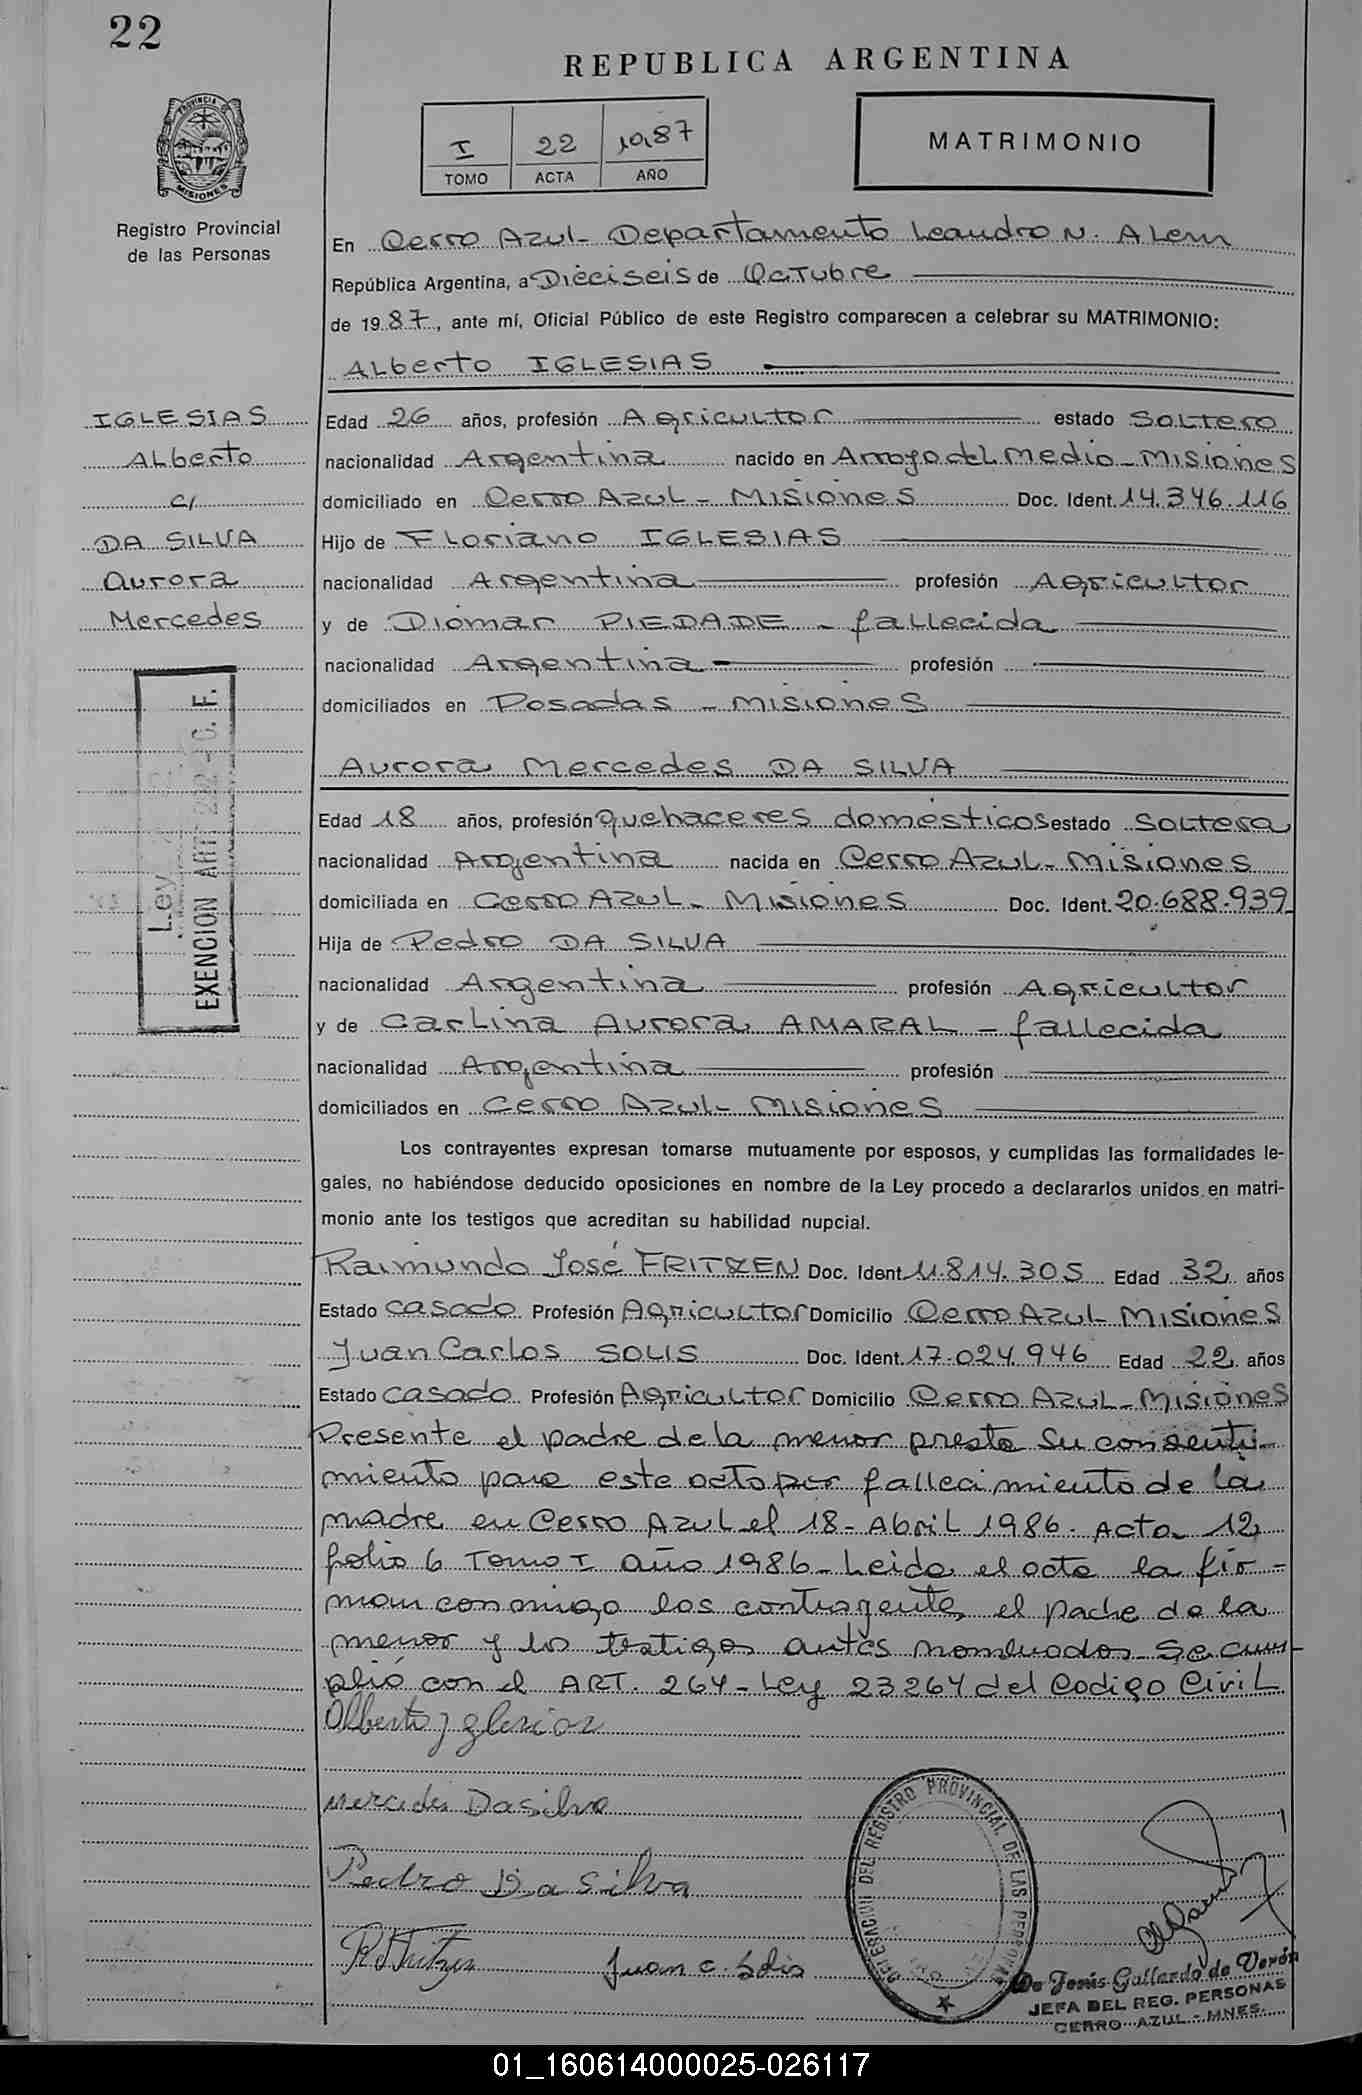 22
REPUBLICA ARGENTINA
I 22 1987
TOMO ACTA AÑO
MATRIMONIO
PROVINCIA DE MISIONES
Registro Provincial
de las Personas
En Cerro Azul- Departamento Leandro N. Alem
República Argentina, a Dieciseis de Octubre
de 1987, ante mí, Oficial Público de este Registro comparecen a celebrar su MATRIMONIO:
Alberto IGLESIAS
IGLESIAS
Alberto
c/
DA SILVA
Aurora
Mercedes
Ley
EXENCION ART 292 - C. F.
Edad 26 años, profesión Agricultor estado Soltero
nacionalidad Argentina nacido en Arroyo del Medio - Misiones
domiciliado en Cerro Azul - Misiones Doc. Ident. 14.346.116
Hijo de Floriano IGLESIAS
nacionalidad Argentina profesión Agricultor
y de Diomar PIEDADE - fallecida
nacionalidad Argentina profesión
domiciliados en Posadas - Misiones
Aurora Mercedes DA SILVA
Edad 18 años, profesión quehaceres domésticos estado Soltera
nacionalidad Argentina nacida en Cerro Azul - Misiones
domiciliada en Cerro Azul - Misiones Doc. Ident. 20.688.939
Hija de Pedro DA SILVA
nacionalidad Argentina profesión Agricultor
y de Carlina Aurora AMARAL - fallecida
nacionalidad Argentina profesión
domiciliados en Cerro Azul - Misiones
Los contrayentes expresan tomarse mutuamente por esposos, y cumplidas las formalidades le-
gales, no habiéndose deducido oposiciones en nombre de la Ley procedo a declararlos unidos en matri-
monio ante los testigos que acreditan su habilidad nupcial.
Raimundo José FRITZEN Doc. Ident. 11.814.305 Edad 32 años
Estado casado Profesión Agricultor Domicilio Cerro Azul Misiones
Juan Carlos SOLIS Doc. Ident. 17.024.946 Edad 22 años
Estado casado Profesión Agricultor Domicilio Cerro Azul - Misiones
Presente el padre de la menor presta su consenti-
miento para este acto por fallecimiento de la
madre en Cerro Azul el 18 - Abril 1986. Acta 12
folio 6 Tomo I año 1986 - Leida el acta la fir-
man conmigo los contrayentes, el padre de la
menor y los testigos antes nombrados. Se cum-
plió con el ART. 264 - Ley 23264 del Codigo Civil
Alberto Iglesias
Mercedes Da silva
Pedro Da Silva
R J Fritzen Juan C. Solis
DELEGACION DEL REGISTRO PROVINCIAL DE LAS PERSONAS
De Jesús Gallardo de Verón
JEFA DEL REG. PERSONAS
CERRO AZUL - MNES.
01_160614000025-026117